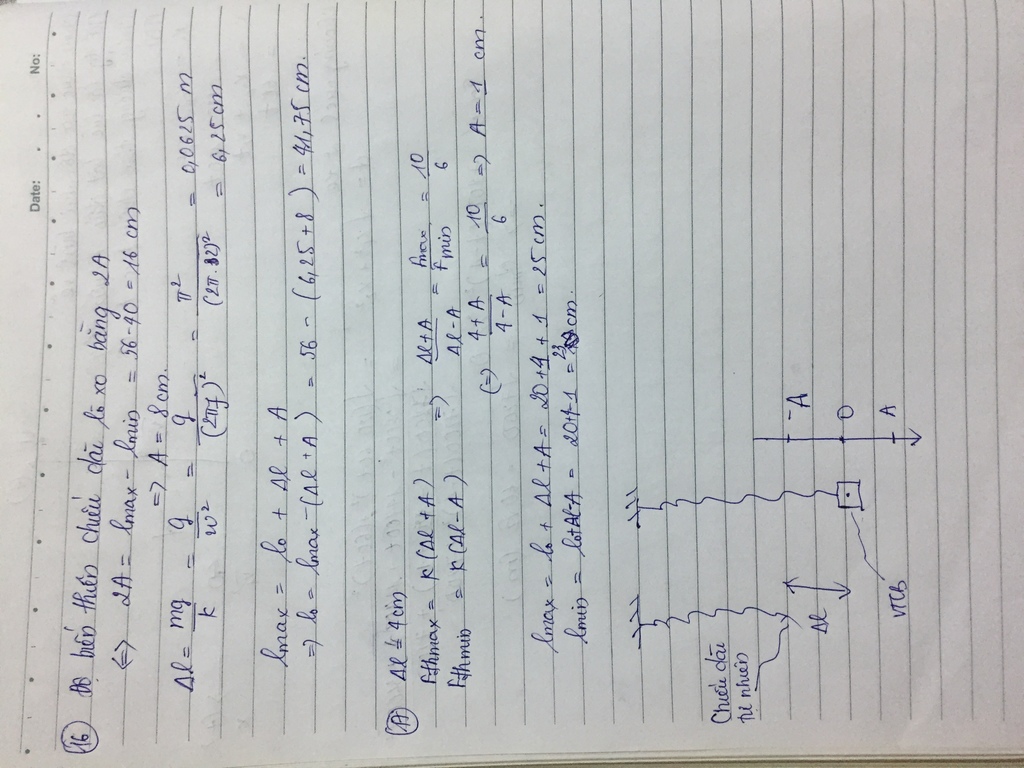 Date: No:
16 Độ biến thiên chiều dài lò xo bằng 2A
<=> 2A = lmax - lmin = 56-40 = 16 cm
=> A = 8 cm.
Δl = mg/k = g/ω² = g/(2πf)² = π²/(2π.2)² = 0,0625 m
= 6,25 cm
lmax = lo + Δl + A
=> lo = lmax - (Δl + A) = 56 - (6,25+8) = 41,75 cm.
17 Δl = 4 cm
Fđhmax = K(Δl + A) => Δl+A/Δl-A = Fmax/Fmin = 10/6
Fđhmin = K(Δl - A) (=) 4+A/4-A = 10/6 => A = 1 cm.
lmax = lo + Δl + A = 20+4+1 = 25 cm.
lmin = lo+Δl-A = 20+4-1 = 23 cm.
Chiều dài
tự nhiên
Δl
VTCB
-A
O
A